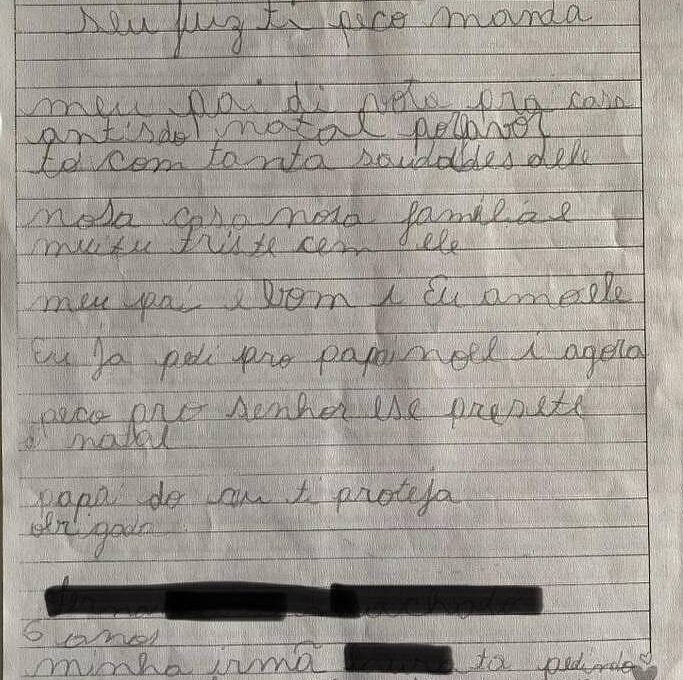 seu juiz ti peco manda
meu pai di volta pra casa
antis do natal porfavor
to com tanta saudades dele
nosa casa nosa familia e
muitu triste cem ele
meu pai e bom i Eu amo ele
Eu ja pedi pro papai noel i agora
peco pro senhor ese presete
di natal
papai do ceu ti proteja
obrigado
6 anos
minha irmã ta pedindo